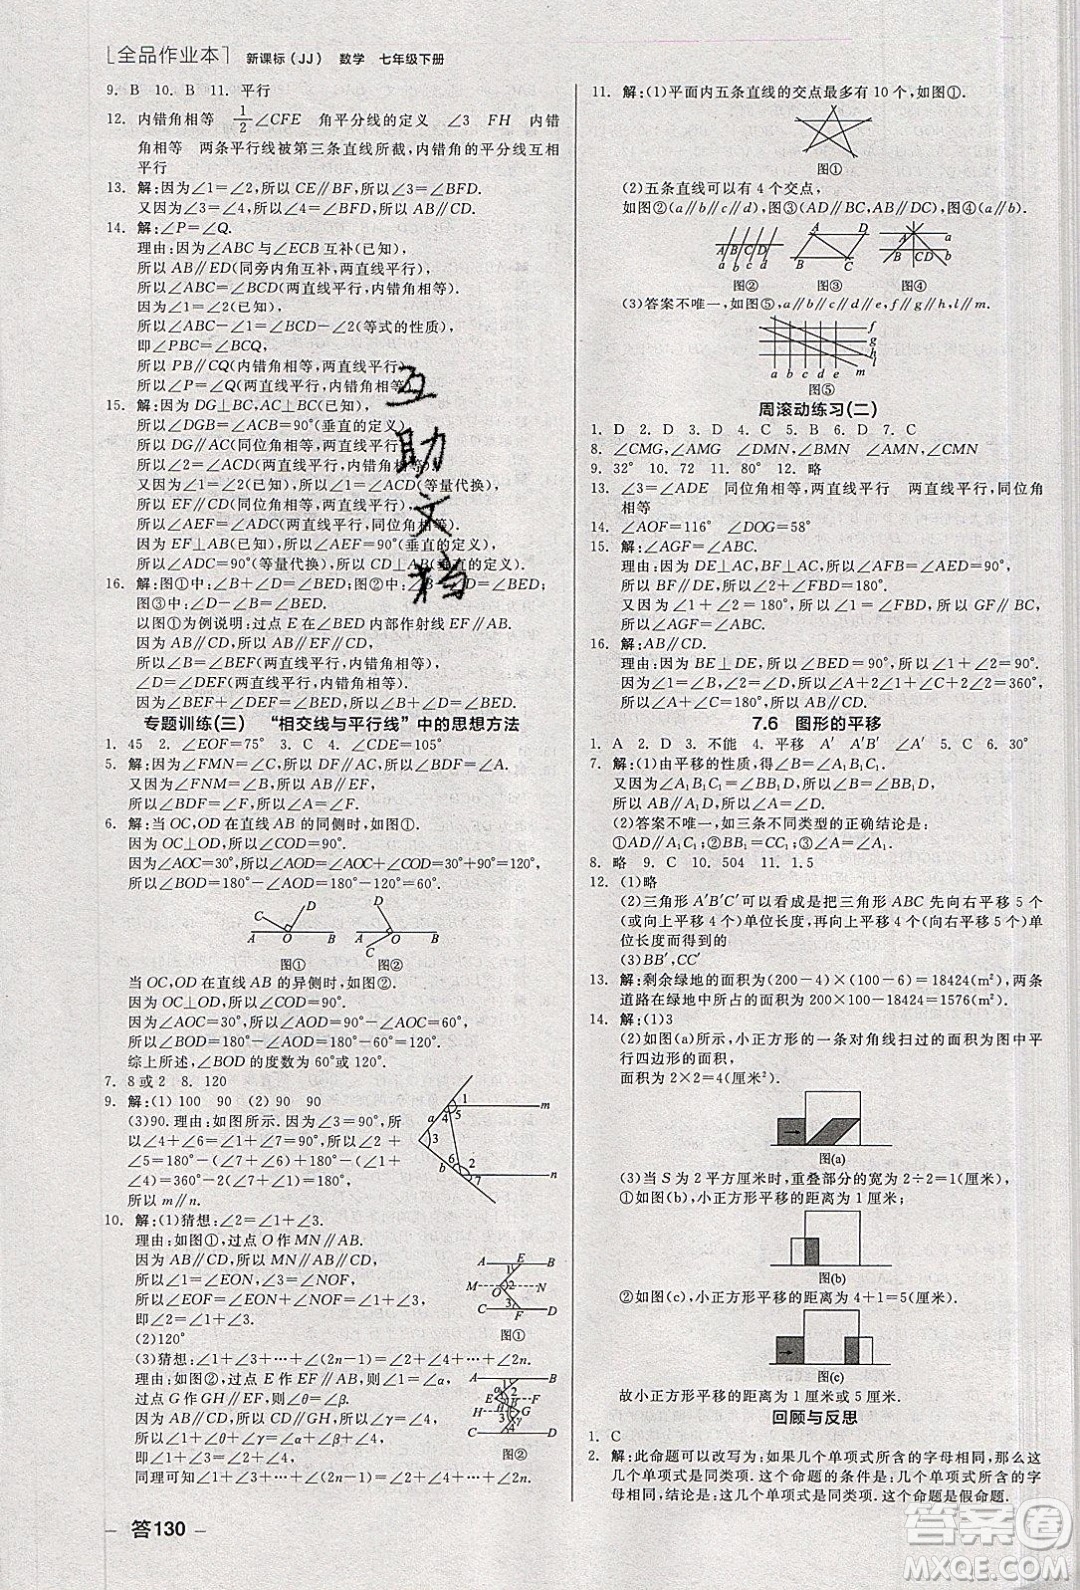 全品作业本 新课标(JJ) 数学 七年级下册
9. B 10. B 11. 平行
12. 内错角相等 1/2∠CFE 角平分线的定义 ∠3 FH 内错
角相等 两条平行线被第三条直线所截,内错角的平分线互相
平行
13. 解:因为∠1=∠2,所以CE∥BF,所以∠3=∠BFD.
又因为∠3=∠4,所以∠4=∠BFD,所以AB∥CD.
14. 解:∠P=∠Q.
理由:因为∠ABC与∠ECB互补(已知),
所以AB∥ED(同旁内角互补,两直线平行).
所以∠ABC=∠BCD(两直线平行,内错角相等).
因为∠1=∠2(已知),
所以∠ABC-∠1=∠BCD-∠2(等式的性质),
即∠PBC=∠BCQ.
所以PB∥CQ(内错角相等,两直线平行).
所以∠P=∠Q(两直线平行,内错角相等).
15. 解:因为DG⊥BC,AC⊥BC(已知),
所以∠DGB=∠ACB=90°(垂直的定义),
所以DG∥AC(同位角相等,两直线平行),
所以∠2=∠ACD(两直线平行,内错角相等).
又因为∠1=∠2(已知),所以∠1=∠ACD(等量代换),
所以EF∥CD(同位角相等,两直线平行),
所以∠AEF=∠ADC(两直线平行,同位角相等).
因为EF⊥AB(已知),所以∠AEF=90°(垂直的定义),
所以∠ADC=90°(等量代换),所以CD⊥AB(垂直的定义).
16. 解:图①中:∠B+∠D=∠BED;图②中:∠B+∠D+∠BED=360°;
图③中:∠B-∠D=∠BED.
以图①为例说明:过点E在∠BED内部作射线EF∥AB.
因为AB∥CD,所以AB∥EF∥CD,
所以∠B=∠BEF(两直线平行,内错角相等),
∠D=∠DEF(两直线平行,内错角相等),
所以∠BEF+∠DEF=∠B+∠D,即∠B+∠D=∠BED.
专题训练(三) “相交线与平行线”中的思想方法
1. 45 2. ∠EOF=75° 3. C 4. ∠CDE=105°
5. 解:因为∠FMN=∠C,所以DF∥AC,所以∠BDF=∠A.
又因为∠FNM=∠B,所以AB∥EF,
所以∠BDF=∠F,所以∠A=∠F.
6. 解:当OC,OD在直线AB的同侧时,如图①.
因为OC⊥OD,所以∠COD=90°.
因为∠AOC=30°,所以∠AOD=∠COD+∠AOC=90°+30°=120°,
所以∠BOD=180°-∠AOD=180°-120°=60°.
C D A O B D A O B C
图① 图②
当OC,OD在直线AB的异侧时,如图②.
因为OC⊥OD,所以∠COD=90°.
因为∠AOC=30°,所以∠AOD=90°-∠AOC=60°,
所以∠BOD=180°-∠AOD=180°-60°=120°.
综上所述,∠BOD的度数为60°或120°.
7. 8或2 8. 120
9. 解:(1)100 90 (2)90 90
(3)90.理由:如图所示.因为∠3=90°,
所以∠4+∠6=90°.所以∠2+∠
5=∠180°-(∠7+∠6)+180°-(∠1+
∠4)=180°.
所以m∥n.
1 4 5 m a 3 b 6 2 7 n
10. 解:(1)猜想:∠2=∠1+∠3.
理由:如图①,过点O作MN∥AB.
因为AB∥CD,所以AB∥MN∥CD,
所以∠1=∠EON,∠3=∠NOF,
所以∠EOF=∠EON+∠NOF=∠1+∠3,
即∠2=∠1+∠3.
A E B 1 M O 2 N 3 C F D
图①
(2)120°
(3)猜想:∠1+∠3+…+∠(2n-1)=∠2+∠4+…+∠2n.
理由:如图②,过点E作EF∥AB,
过点G作GH∥EF,所以∠α=∠β.
因为AB∥CD,所以CD∥GH,所以∠γ=∠7,
所以∠1+∠β+∠γ=∠2+∠α+∠7,
即∠1+∠3+∠5=∠2+∠4+∠6.
同理可知∠1+∠3+…+∠(2n-1)=∠2+∠4+…+∠2n.
图②
答130
11. 解:(1)平面内五条直线的交点最多有10个,如图①.
图①
(2)五条直线可以有4个交点,
如图②(a∥b∥c∥d),图③(AD∥BC,AB∥CD),图④(a∥b).
a b c d A D B C A a B C D b
图② 图③ 图④
(3)答案不唯一,如图⑤,a∥b∥c∥d∥e,f∥g∥h,l∥m.
f g h l a b c d e m
图⑤
周滚动练习(二)
1. D 2. D 3. D 4. C 5. B 6. D 7. C
8. ∠CMG,∠FMG ∠DMN ∠FMN,∠BNM ∠CMN
9. 32° 10. 72 11. 80° 12. 略
13. ∠3=∠ADE 同位角相等,两直线平行 两直线平行,同位角
相等
14. ∠AOF=116° ∠DOG=58°
15. 解:∠AGF=∠ABC.
理由:因为DE⊥AC,BF⊥AC,
所以DE∥BF,所以∠2+∠FBD=180°.
又因为∠1+∠2=180°,所以∠1=∠FBD,所以GF∥BC,
所以∠AGF=∠ABC.
16. 解:AB∥CD.
理由:因为BE⊥DE,所以∠BED=90°,所以∠1+∠2=90°.
因为∠ABD=2∠1,∠BDC=2∠2,所以2∠1+2∠2=360°-
180°,即∠ABD+∠BDC=180°,所以AB∥CD.
7.6 图形的平移
1. A 2. D 3. 不能 4. 平移 A′ A′ 5. C 6. 30°
7. 解:(1)由平移的性质,得∠B=∠B₁,A₁B₁∥AB,
所以∠A=∠A₁DC,∠B=∠BB₁D,
所以∠A₁DC+∠BB₁D=∠A+∠B=90°.
(2)答案不唯一,如三条不同类型的正确结论是:
①AB∥A₁B₁;②BB₁=CC₁;③∠A=∠A₁.
8. 略 9. C 10. 504 11. 1.5
12. (1)略
(2)三角形A′B′C′可以看成是把三角形ABC先向右平移5个
(或向上平移4个)单位长度,再向上平移4个(向右平移5个)单
位长度而得到的
(3)BB′,CC′
13. 解:剩余绿地的面积为(200-4)×(100-6)=18424(m²),两条
道路在绿地中所占的面积为200×100-18424=1576(m²).
14. 解:(1)3
(2)如图(a)所示,小正方形的一条对角线扫过的图形为图中平
行四边形的面积,
面积为2×2=4(厘米²).
图(a)
(3)当S为2平方厘米时,重叠部分的宽为2÷2=1(厘米).
①如图(b),小正方形平移的距离为1厘米;
图(b)
②如图(c),小正方形平移的距离为4+1=5(厘米).
图(c)
故小正方形平移的距离为1厘米或5厘米.
回顾与反思
1. C
2. 解:此命题可以改写为:如果几个单项式所含的字母相同,那么这
几个单项式是同类项.这个命题的条件是:几个单项式所含的字
母相同,结论是:这几个单项式是同类项.这个命题是假命题.
互助文档
答案卷
MXQE.COM